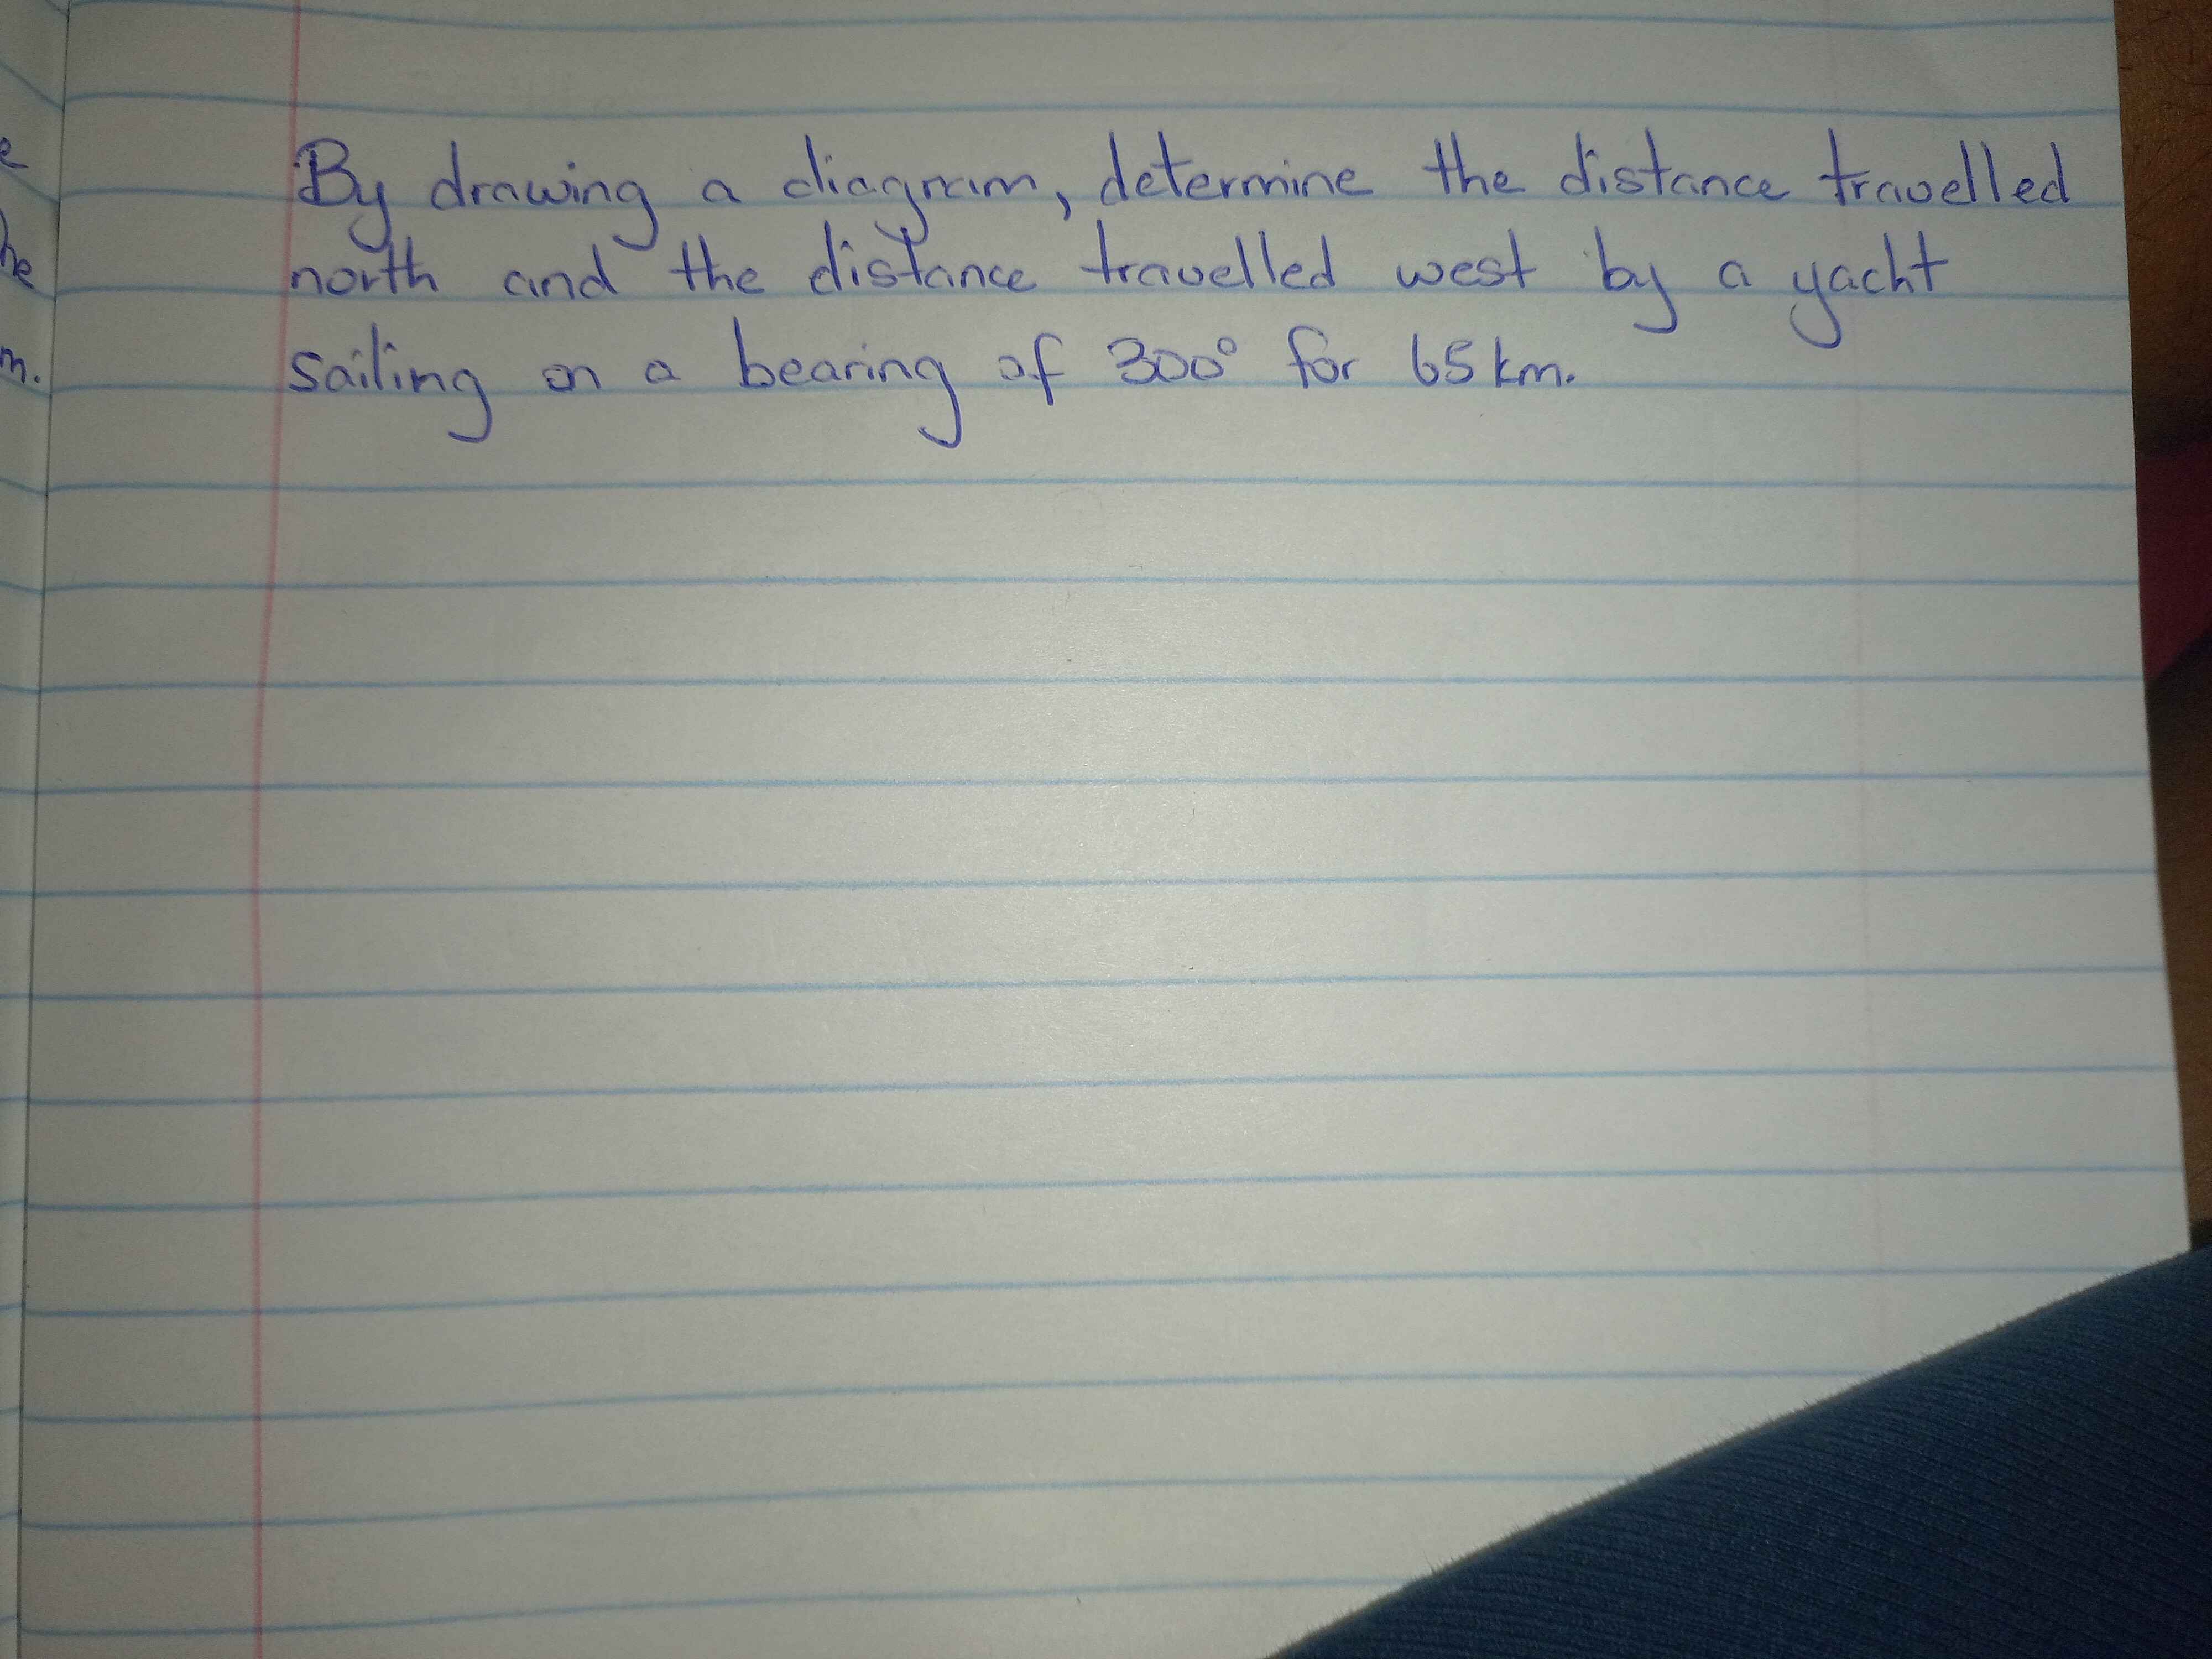 e
he
m.
By drawing a diagram, determine the distance travelled
north and the distance travelled west by a yacht
sailing on a bearing of 300° for 65 km.